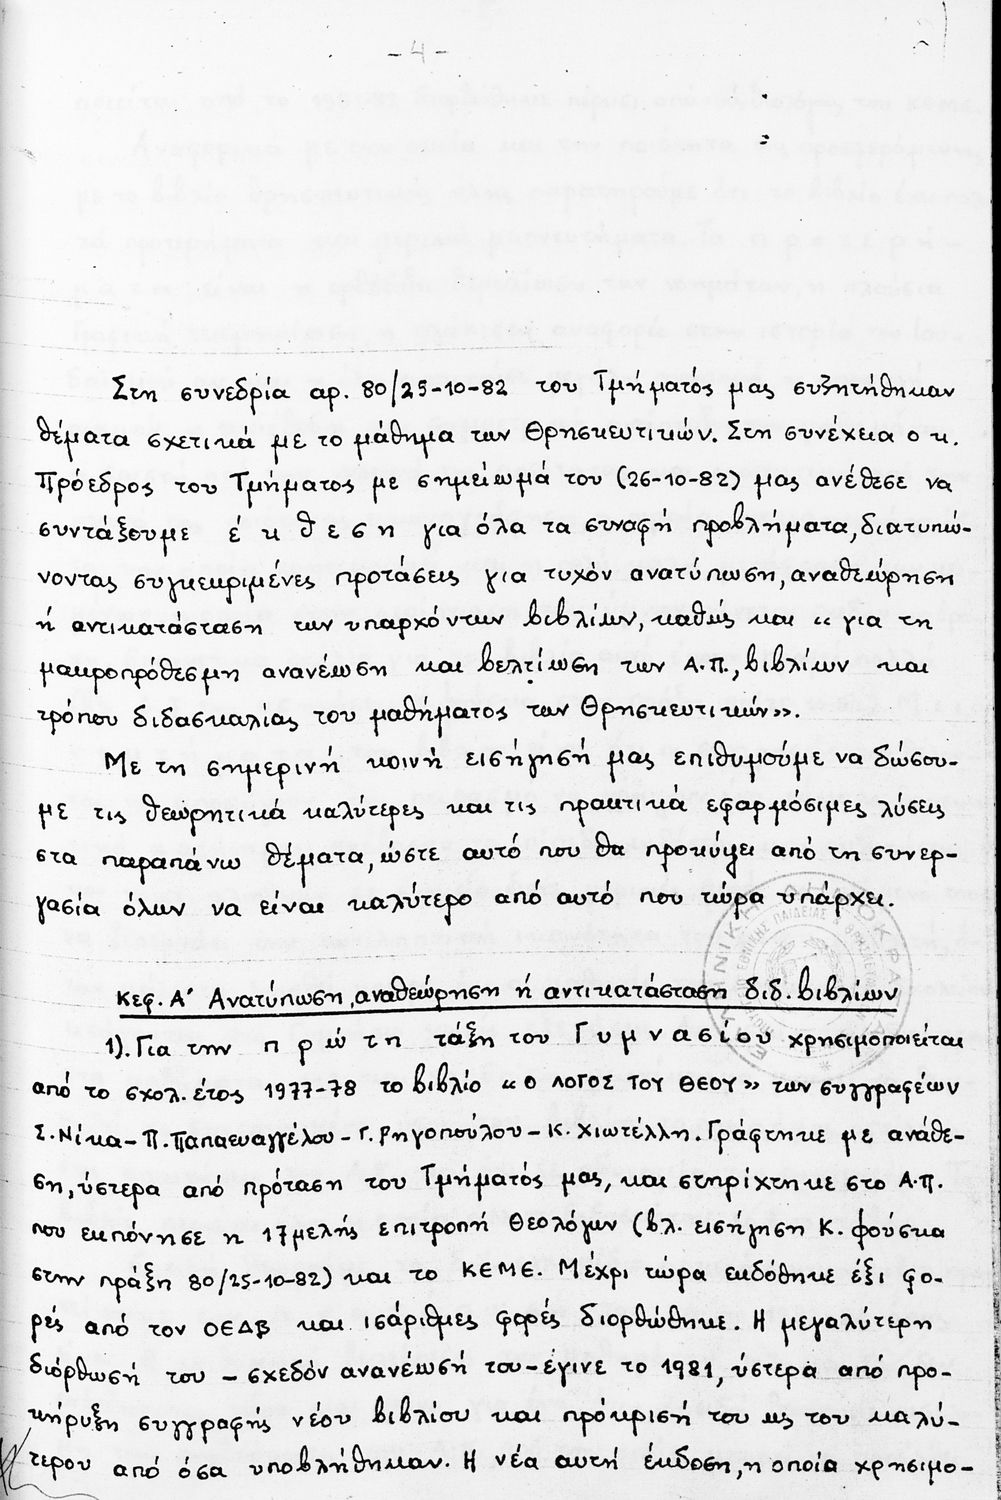 - 4 -
Στη συνεδρία αρ. 80/25-10-82 του Τμήματός μας συζητήθηκαν
θέματα σχετικά με το μάθημα των Θρησκευτικών. Στη συνέχεια ο κ.
Πρόεδρος του Τμήματος με σημείωμά του (26-10-82) μας ανέθεσε να
συντάξουμε έ κ θ ε σ η για όλα τα συναφή προβλήματα, διατυπώ-
νοντας συγκεκριμένες προτάσεις για τυχόν ανατύπωση, αναθεώρηση
ή αντικατάσταση των υπαρχόντων βιβλίων, καθώς και « για τη
μακροπρόθεσμη ανανέωση και βελτίωση των Α.Π., βιβλίων και
τρόπου διδασκαλίας του μαθήματος των Θρησκευτικών».
Με τη σημερινή κοινή εισήγησή μας επιθυμούμε να δώσου-
με τις θεωρητικά καλύτερες και τις πρακτικά εφαρμόσιμες λύσεις
στα παραπάνω θέματα, ώστε αυτό που θα προκύψει από τη συνερ-
γασία όλων να είναι καλύτερο από αυτό που τώρα υπάρχει.
Κεφ. Α' Ανατύπωση, αναθεώρηση ή αντικατάσταση διδ. βιβλίων
1). Για την π ρ ώ τ η τάξη του Γ υ μ ν α σ ί ο υ χρησιμοποιείται
από το σχολ. έτος 1977-78 το βιβλίο « Ο ΛΟΓΟΣ ΤΟΥ ΘΕΟΥ » των συγγραφέων
Σ. Νίκα - Π. Παπαευαγγέλου - Γ. Ρηγοπούλου - Κ. Χιωτέλλη. Γράφτηκε με ανάθε-
ση, ύστερα από πρόταση του Τμήματός μας, και στηρίχτηκε στο Α.Π.
που εκπόνησε η 17μελής επιτροπή Θεολόγων (βλ. εισήγηση Κ. Φούσκα
στην πράξη 80/25-10-82) και το ΚΕΜΕ. Μέχρι τώρα εκδόθηκε έξι φο-
ρές από τον ΟΕΔΒ και ισάριθμες φορές διορθώθηκε. Η μεγαλύτερη
διόρθωσή του - σχεδόν ανανέωσή του - έγινε το 1981, ύστερα από προ-
κήρυξη συγγραφής νέου βιβλίου και πρόκρισή του ως του καλύ-
τερου από όσα υποβλήθηκαν. Η νέα αυτή έκδοση, η οποία χρησιμο-